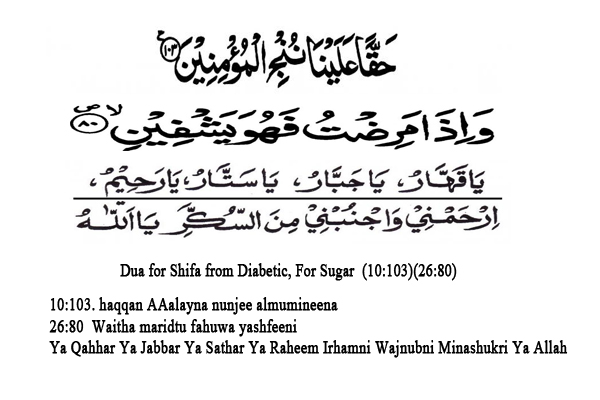 حَقًّا عَلَيْنَا نُنْجِ الْمُؤْمِنِيْنَ ۝١٠٣
وَاِذَا مَرِضْتُ فَهُوَ يَشْفِيْنِ ۝٨٠
يَا قَهَّارُ، يَا جَبَّارُ، يَا سَتَّارُ، يَارَحِيْمُ،
اِرْحَمْنِيْ وَاجْنُبْنِيْ مِنَ السُّكَّرِ يَا اَللّٰهُ
Dua for Shifa from Diabetic, For Sugar (10:103)(26:80)
10:103. haqqan AAalayna nunjee almumineena
26:80 Waitha maridtu fahuwa yashfeeni
Ya Qahhar Ya Jabbar Ya Sathar Ya Raheem Irhamni Wajnubni Minashukri Ya Allah